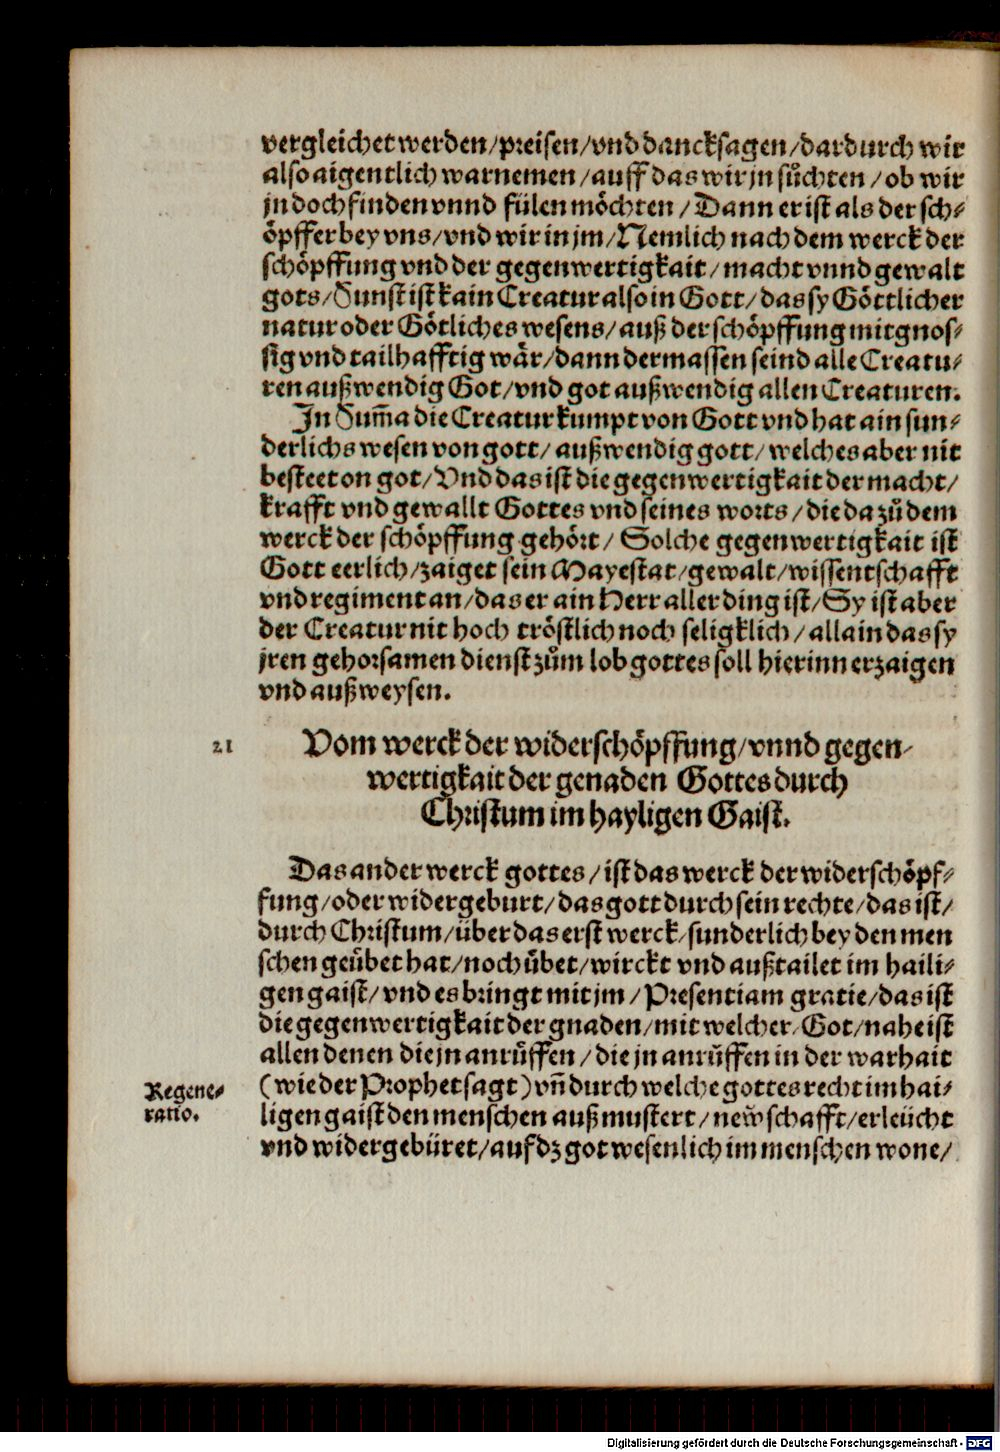 vergleichet werden/preisen/vnd dancksagen/dardurch wir
also aigentlich warnemen/auff das wir jn sůchten/ob wir
jn doch finden vnnd fülen möchten/Dann er ist als der sch⸗
öpffer bey vns/vnd wir in jm/Nemlich nach dem werck der
schöpffung vnd der gegenwertigkait/macht vnnd gewalt
gots/Sunst ist kain Creatur also in Gott/das sy Göttlicher
natur oder Götliches wesens/auß der schöpffung mitgnos⸗
sig vnd tailhafftig wär/dann dermassen seind alle Creatu⸗
ren außwendig Got/vnd got außwendig allen Creaturen.
In Sum̃a die Creatur kumpt von Gott vnd hat ain sun⸗
derlichs wesen von gott/außwendig gott/welches aber nit
besteet on got/Vnd das ist die gegenwertigkait der macht/
krafft vnd gewallt Gottes vnd seines worts/die da zů dem
werck der schöpffung gehört/Solche gegenwertigkait ist
Gott eerlich/zaiget sein Mayestat/gewalt/wissentschafft
vnd regiment an/das er ain Herr aller ding ist/Sy ist aber
der Creatur nit hoch tröstlich noch seligklich/allain das sy
jren gehorsamen dienst zům lob gottes soll hierinn erzaigen
vnd außweysen.
21 Vom werck der widerschöpffung/vnnd gegen⸗
wertigkait der genaden Gottes durch
Christum im hayligen Gaist.
Das ander werck gottes/ist das werck der widerschöpf⸗
fung/oder widergeburt/das gott durch sein rechte/das ist/
durch Christum/über das erst werck/sunderlich bey den men
schen geübet hat/noch übet/wirckt vnd außtailet im haili⸗
gen gaist/vnd es bringt mit jm/Presentiam gratie/das ist
die gegenwertigkait der gnaden/mit welcher/Got/nahe ist
allen denen die jn anrůffen/die jn anrůffen in der warhait
(wie der Prophet sagt) vñ durch welche gottes recht im hai⸗
Regene⸗
ratio.
ligen gaist den menschen auß mustert/new̌ schafft/erleücht
vnd widergebüret/auf dz got wesenlich im menschen wone/
Digitalisierung gefördert durch die Deutsche Forschungsgemeinschaft - DFG